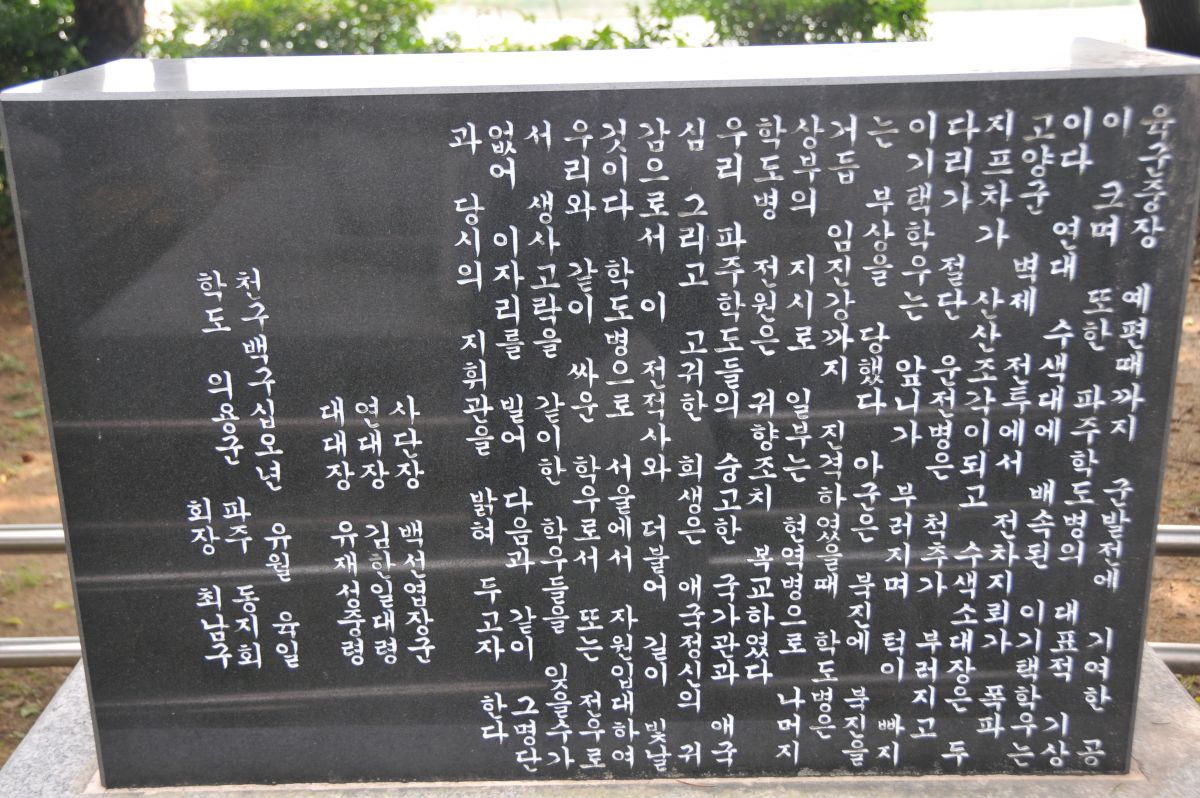 육군중장 예편때까지 군발전에 기여한 공
이 크며 또한 파주학도병의 대표적 기상
이다 연대 수색대에 배속된 이기택학우는
고양군 벽제 전투에서 전차지뢰가 폭파
지프차가 산산조각이되고 수색소대장은 두
다리가 절단 운전병은 척추가 부러지고
이기택학우는 앞니가 부러지며 턱이 빠지
는 부상을 당했다 아군은 북진에 북진을
거듭 임진강까지 진격하였을때 학도병은
상부의 지시로 일부는 현역병으로 나머지
학도병 전원은 귀향조치 복교하였다
우리 파주학도들의 숭고한 국가관과 애국
심 그리고 고귀한 희생은 애국정신의 귀
감으로서 이 전적사와 더불어 길이 빛날
것이다 학도병으로 서울에서 자원입대하여
우리와 같이 싸운 학우로서 또는 전우로
서 생사고락을 같이한 학우들을 잊을수가
없어 이자리를 빌어 다음과 같이 그명단
과 당시의 지휘관을 밝혀 두고자 한다
사단장 백선엽장군
연대장 김한일대령
대대장 유재성중령
천구백구십오년 유월 육일
학도 의용군 파주 동지회
회장 최남구